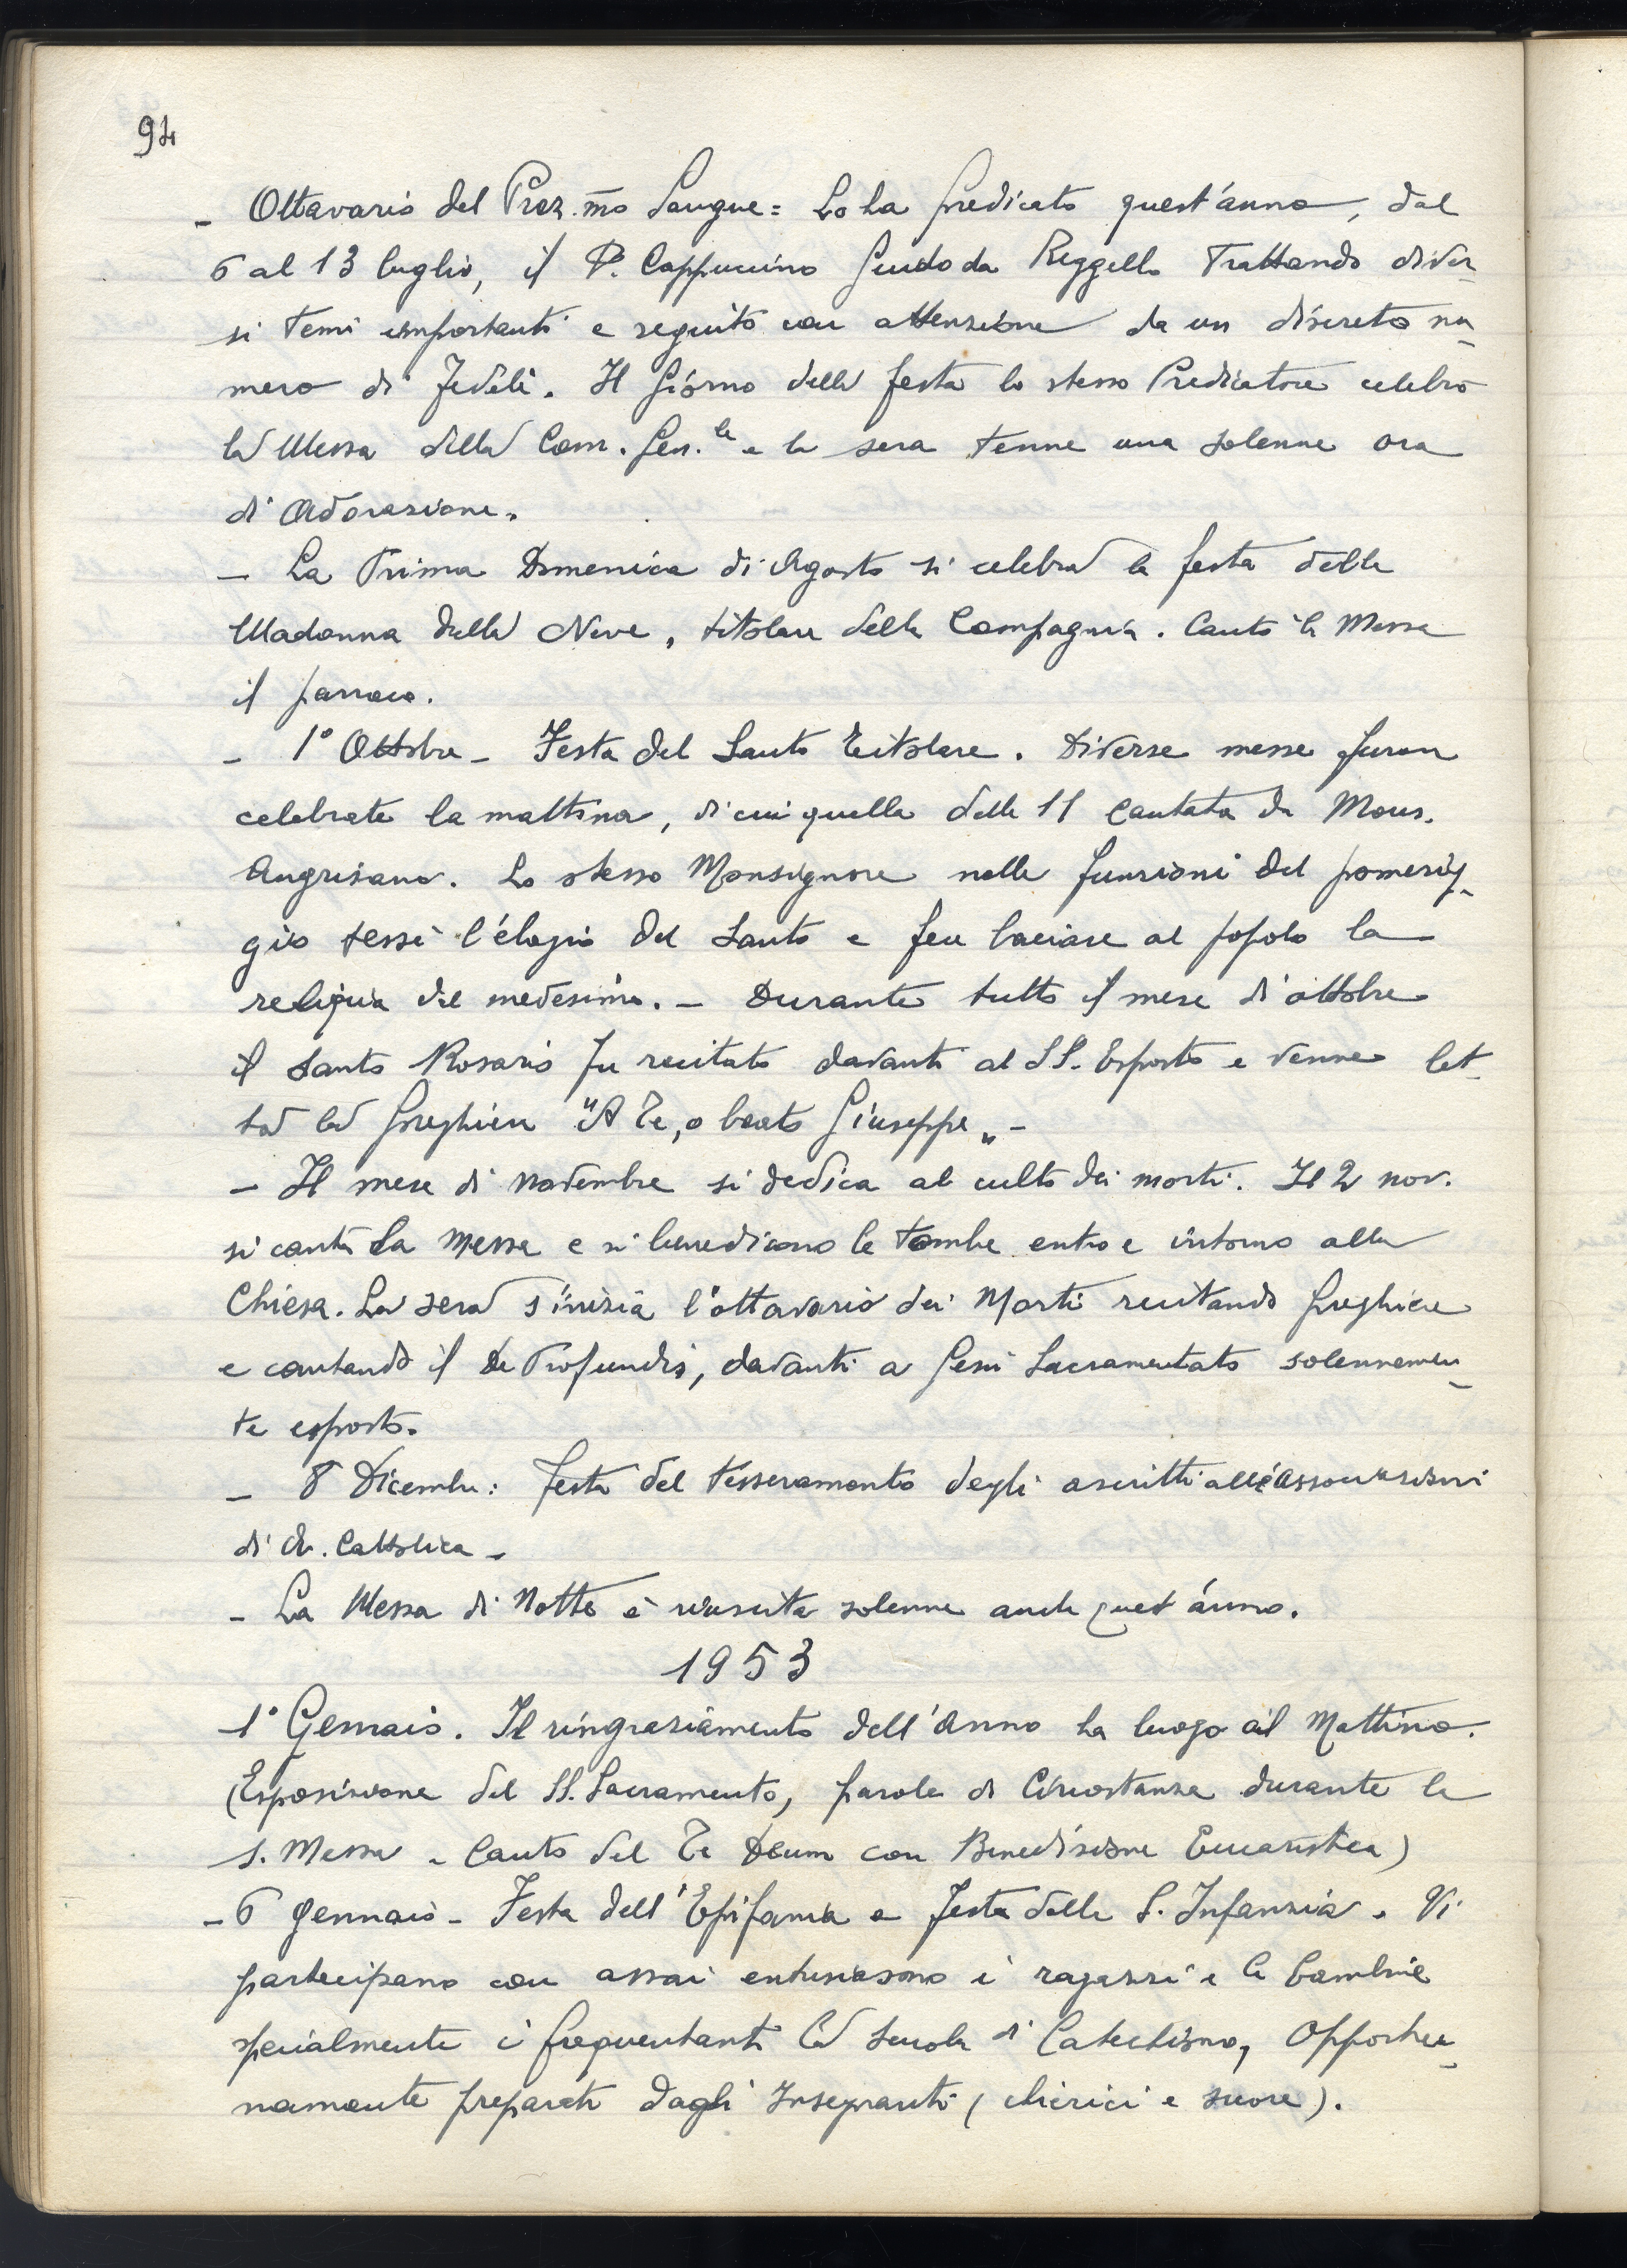 94
- Ottavario del Prez.mo Sangue = Lo ha predicato quest'anno, dal
6 al 13 luglio, il P. Cappuccino Guido da Reggello trattando diver-
si temi importanti e seguito con attenzione da un discreto nu-
mero di Fedeli. Il giorno della festa lo stesso Predicatore celebrò
la Messa della Com. Gen.le e la sera tenne una solenne ora
di Adorazione.
- La Prima Domenica di Agosto si celebra la festa della
Madonna della Neve, titolare della Compagnia. Cantò la Messa
il parroco.
- 1° Ottobre - Festa del Santo Titolare. Diverse messe furon
celebrate la mattina, di cui quella delle 11 cantata da Mons.
Angrisano. Lo stesso Monsignore nelle funzioni del pomerig-
gio tessè l'elogio del Santo e fece baciare al popolo la
reliquia del medesimo. - Durante tutto il mese di ottobre
il santo Rosario fu recitato davanti al SS. Esposto e venne let-
ta la preghiera "A Te, o beato Giuseppe" -
- Il mese di novembre si dedica al culto dei morti. Il 2 nov.
si canta la Messa e si benedicono le tombe entro e intorno alla
Chiesa. La sera s'inizia l'ottavario dei Morti recitando preghiere
e cantando il De Profundis, davanti a Gesù Sacramentato solennemen-
te esposto.
- 8 Dicembre: festa del tesseramento degli ascritti alle Associazioni
di A. Cattolica -
- La Messa di Notte è riuscita solenne anche quest'anno.
1953
1° Gennaio. Il ringraziamento dell'Anno ha luogo al Mattino.
(Esposizione del SS. Sacramento, parole di Circostanza durante la
S. Messa e Canto del Te Deum con Benedizione Eucaristica)
- 6 gennaio - Festa dell'Epifania e festa della S. Infanzia. Vi
partecipano con assai entusiasmo i ragazzi e le bambine
specialmente i frequentanti la scuola di Catechismo, Opportu-
namente preparati dagli Insegnanti (chierici e suore).